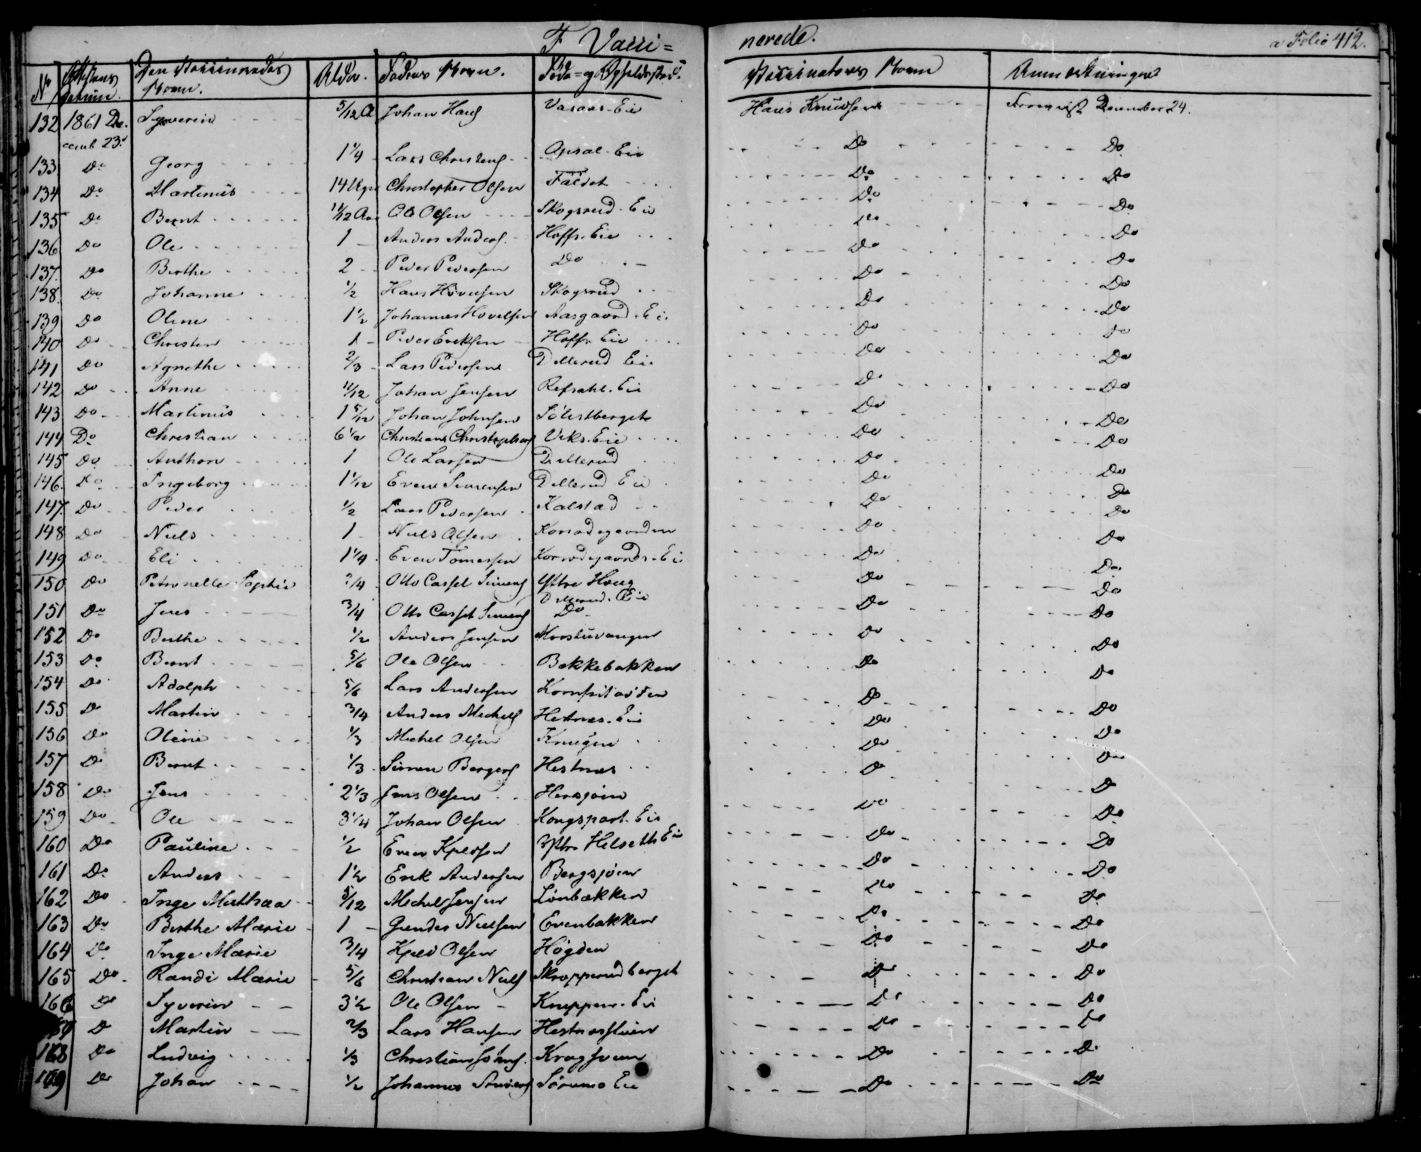 F. Vacci= nerede. a Folio 412.
No Attestens Datum Den Vaccineredes Navn. Alder. Fadrens Navn. Føde- og Opholdssted. Vaccinators Navn Anmærkninger
132 1861 De- Syverin 5/12 A Johan Hans Eie Hans Knudsen December 24.
cemb. 23d
133 Do Georg 1 1/4 Lars Christens Opsal-Eie Do Do
134 Do Martinus 14 Uger Christopher Olsen Faldet Do Do
135 Do Bernt 11/12 Aa Ole Olsen Skogsrud-Eie Do Do
136 Do Ole 1 Anders Anders Hoffs-Eie Do Do
137 Do Berthe 2 Peder Pedersen Do Do Do
138 Do Johanne 1/2 Hans Hovelsen Skogsrud Do Do
139 Do Oline 1 1/2 Johannes Hovelsen Aasgaard-Ei Do Do
140 Do Christen 1 Peder Eriksen Hoffs Eie Do Do
141 Do Agnethe 2/3 Lars Pedersen Dillerud Eie Do Do
142 Do Anne 11/12 Johan Jensen Refsahl-Eie Do Do
143 Do Martinus 1 5/12 Johan Johnsen Do Do
144 Do Christian 6 1/2 Christian Christophers Viks-Eie Do Do
145 Do Anthon 1 Ole Larsen Dillerud Do Do
146 Do Ingeborg 1 1/12 Even Simensen Dillerud Eie Do Do
147 Do Peder 1/2 Lars Pedersen Kalstad Do Do
148 Do Niels 1 Niels Olsen Korsødegaarden Do Do
149 Do Eli 1 1/4 Even Tomessen Korsødegaards-Ei Do Do
150 Do Petronelle Sophie 3/4 Otto Casset Simens Østre Houg Do Do
Dillerud-Eie
151 Do Jens 3/4 Otto Casset Simens Do Do Do
152 Do Berthe 1/2 Anders Jensen Korstuvangen Do Do
153 Do Bernt 5/6 Ole Olsen Bakkebakken Do Do
154 Do Adolph 5/6 Lars Andersen Kornsitadden Do Do
155 Do Martin 3/4 Anders Michels Hestnæs-Eie Do Do
156 Do Oline 1/3 Michel Olsen Do Do
157 Do Bernt 1/3 Simen Bergers Hestnæs Do Do
158 Do Jens 2 1/3 Jens Olsen Hersjøen Do Do
159 Do Ole 3 1/4 Johan Olsen Kongspart-Eie Do Do
160 Do Pauline 1/2 Even Kjeldsen Østre Helseth Eie Do Do
161 Do Anders 1 1/2 Erik Andersen Bergsjøen Do Do
162 Do Inge Mathea 5/12 Michel Jensen Lønbakken Do Do
163 Do Berthe Marie 1 Gunder Nielsen Evenbakken Do Do
164 Do Inge Marie 3/4 Kjeld Olsen Høgden Do Do
165 Do Randi Marie 5/6 Christian Niels Skropperudberget Do Do
166 Do Syverin 3 1/2 Ole Olsen Knappen-Eie Do Do
Do Martin 2/3 Lars Hansen Hestnæsstuen Do Do
168 Do Ludvig 1/3 Krogsveen Do Do
169 Do Johan 1/2 Johannes Anders Sørumo Eie Do Do